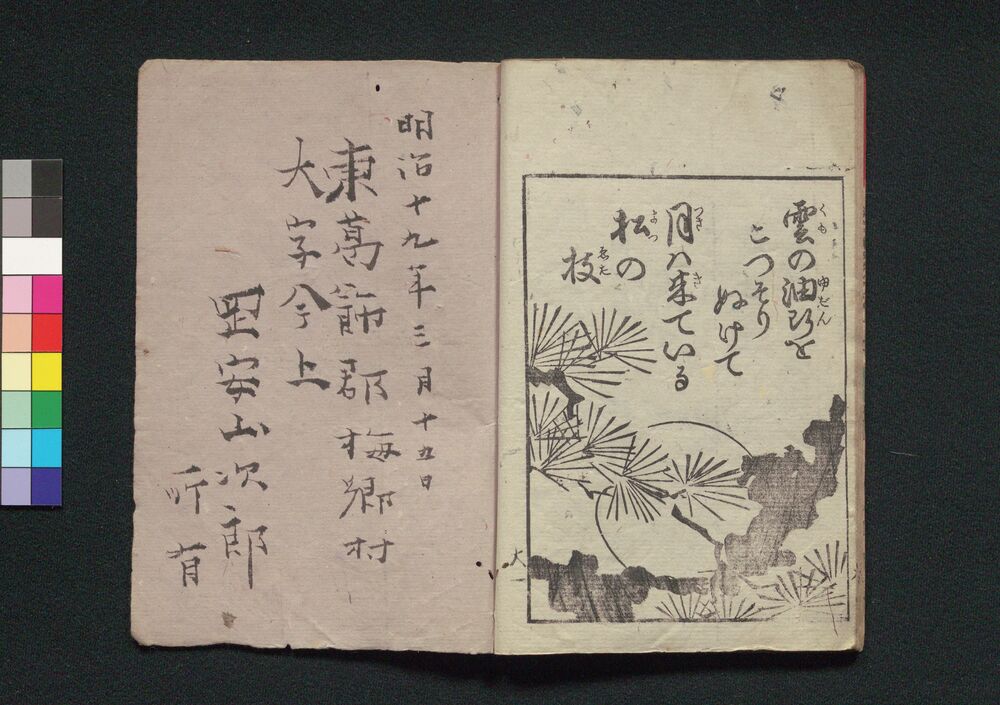 雲の油断を
こつそり
ぬけて
月ハ来ている
松の
枝
明治十九年三月十五日
東葛飾郡梅郷村
大字今上
岡安山次郎
所有